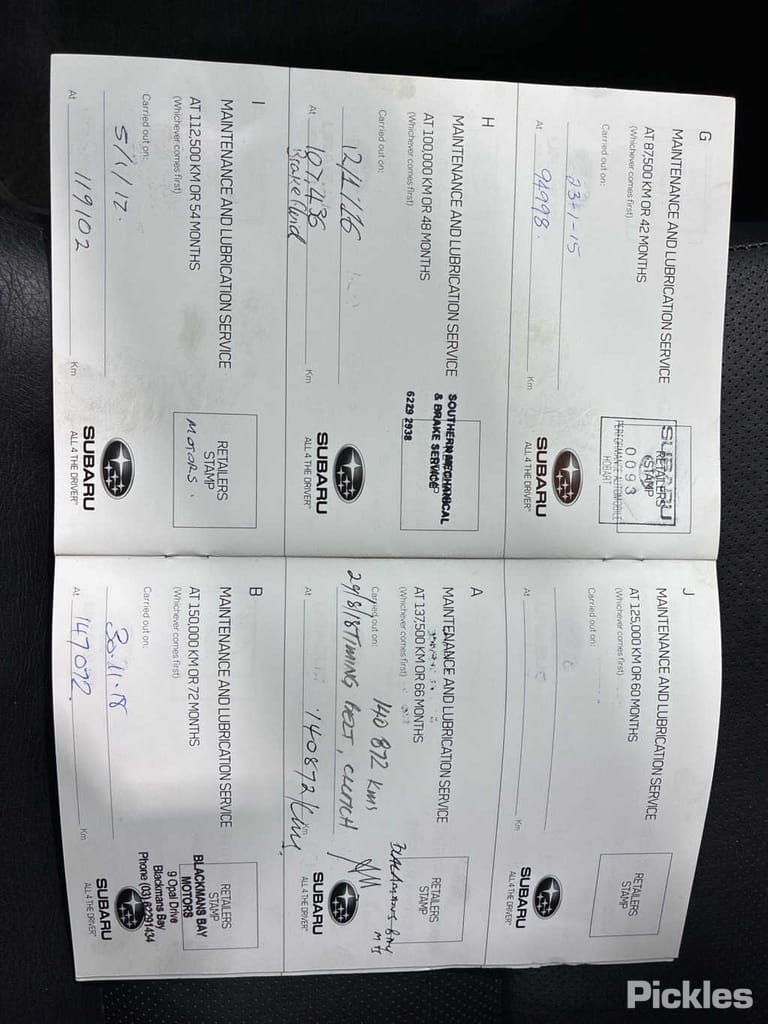 G
MAINTENANCE AND LUBRICATION SERVICE
AT 87,500 KM OR 42 MONTHS
(Whichever comes first)
Carried out on:
23-1-15
At 94998. Km
SUBARU
RETAILERS
STAMP
0093
PERFORMANCE AUTOMOBILE
HOBART
SUBARU
ALL 4 THE DRIVER
H
MAINTENANCE AND LUBRICATION SERVICE
AT 100,000 KM OR 48 MONTHS
(Whichever comes first)
Carried out on:
12/1/16
At 107,436 Km
Brake Fluid
SOUTHERN MECHANICAL
& BRAKE SERVICE
6229 2938
SUBARU
ALL 4 THE DRIVER
I
MAINTENANCE AND LUBRICATION SERVICE
AT 112,500 KM OR 54 MONTHS
(Whichever comes first)
Carried out on:
5/1/17.
At 119102 Km
RETAILERS
STAMP
MOTORS.
SUBARU
ALL 4 THE DRIVER
J
MAINTENANCE AND LUBRICATION SERVICE
AT 125,000 KM OR 60 MONTHS
(Whichever comes first)
Carried out on:
At Km
RETAILERS
STAMP
SUBARU
ALL 4 THE DRIVER
A
MAINTENANCE AND LUBRICATION SERVICE
AT 137,500 KM OR 66 MONTHS
(Whichever comes first)
140 872 kms
Carried out on:
29/8/18 TIMING BELT, CLUTCH
At 140872 Km
RETAILERS
STAMP
BLACKMANS BAY
SUBARU
ALL 4 THE DRIVER
B
MAINTENANCE AND LUBRICATION SERVICE
AT 150,000 KM OR 72 MONTHS
(Whichever comes first)
Carried out on:
30.11.18
At 147092 Km
RETAILERS
STAMP
BLACKMANS BAY
MOTORS
9 Opal Drive
Blackmans Bay
Phone (03) 62291434
SUBARU
ALL 4 THE DRIVER
Pickles